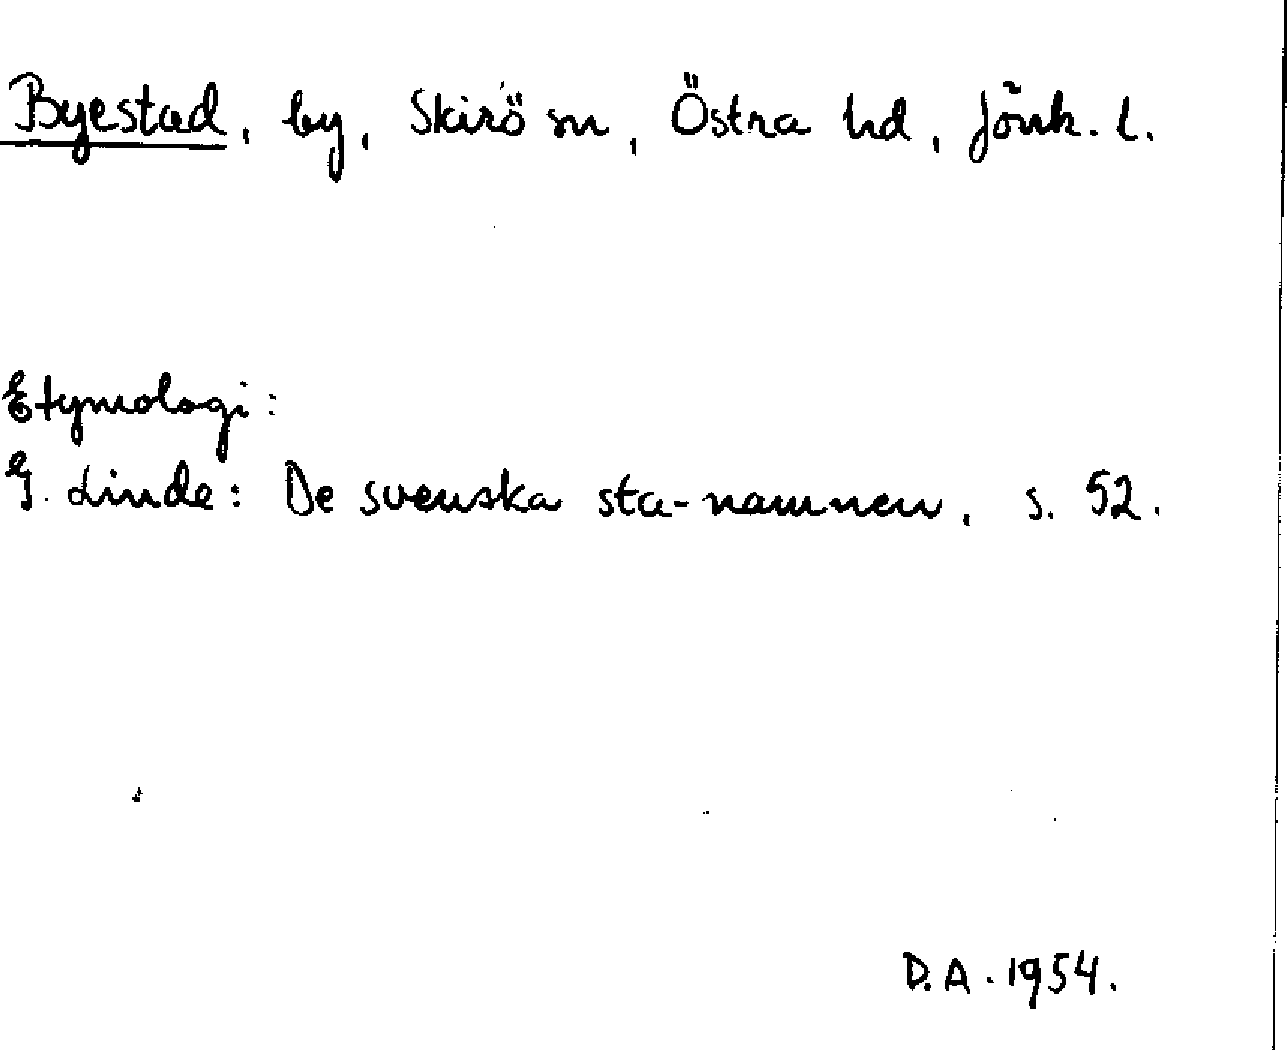 Byestad, by, Skirö sn, Östra hd, Jönk. l.
Etymologi:
G. Linde: De svenska sta-namnen, s. 52.
D.A. 1954.